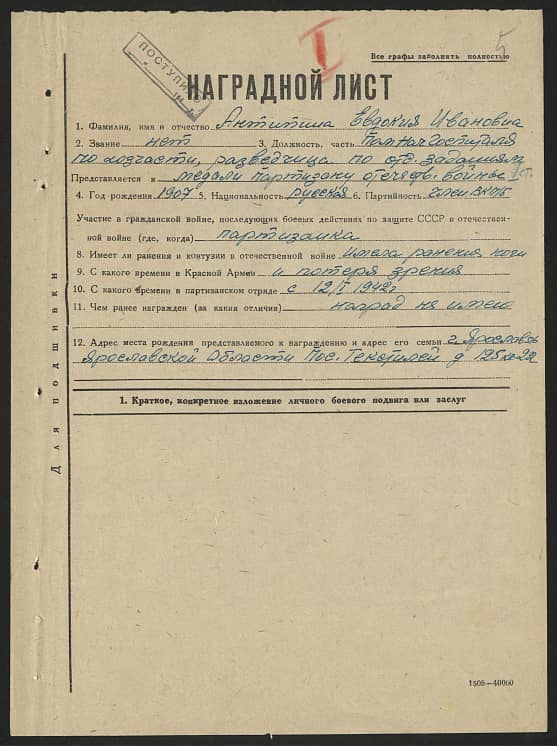 5
I
Все графы заполнять полностью
ПОСТУПИЛО
НАГРАДНОЙ ЛИСТ
1. Фамилия, имя и отчество Антипина Евдокия Ивановна
2. Звание нет 3. Должность, часть Пом. нач госпиталя
по хозчасти, разведчица по отд. заданиям
Представляется к медали партизану отечеств. войны I ст.
4. Год рождения 1907 5. Национальность русская 6. Партийность член ВКПб
Участие в гражданской войне, последующих боевых действиях по защите СССР в отечествен-
ной войне (где, когда) партизанка
8. Имеет ли ранения и контузии в отечественной войне Имела ранения ноги
9. С какого времени в Красной Армии и потеря зрения
10. С какого времени в партизанском отряде с 12/I 1942г
11. Чем ранее награжден (за какия отличия) наград не имею
12. Адрес места рождения представляемого к награждению и адрес его семьи г. Ярославль
Ярославской Области Пос. Текстилей д 125 кв 22
1. Краткое, конкретное изложение личного боевого подвига или заслуг
Для подшивки
1505—40000